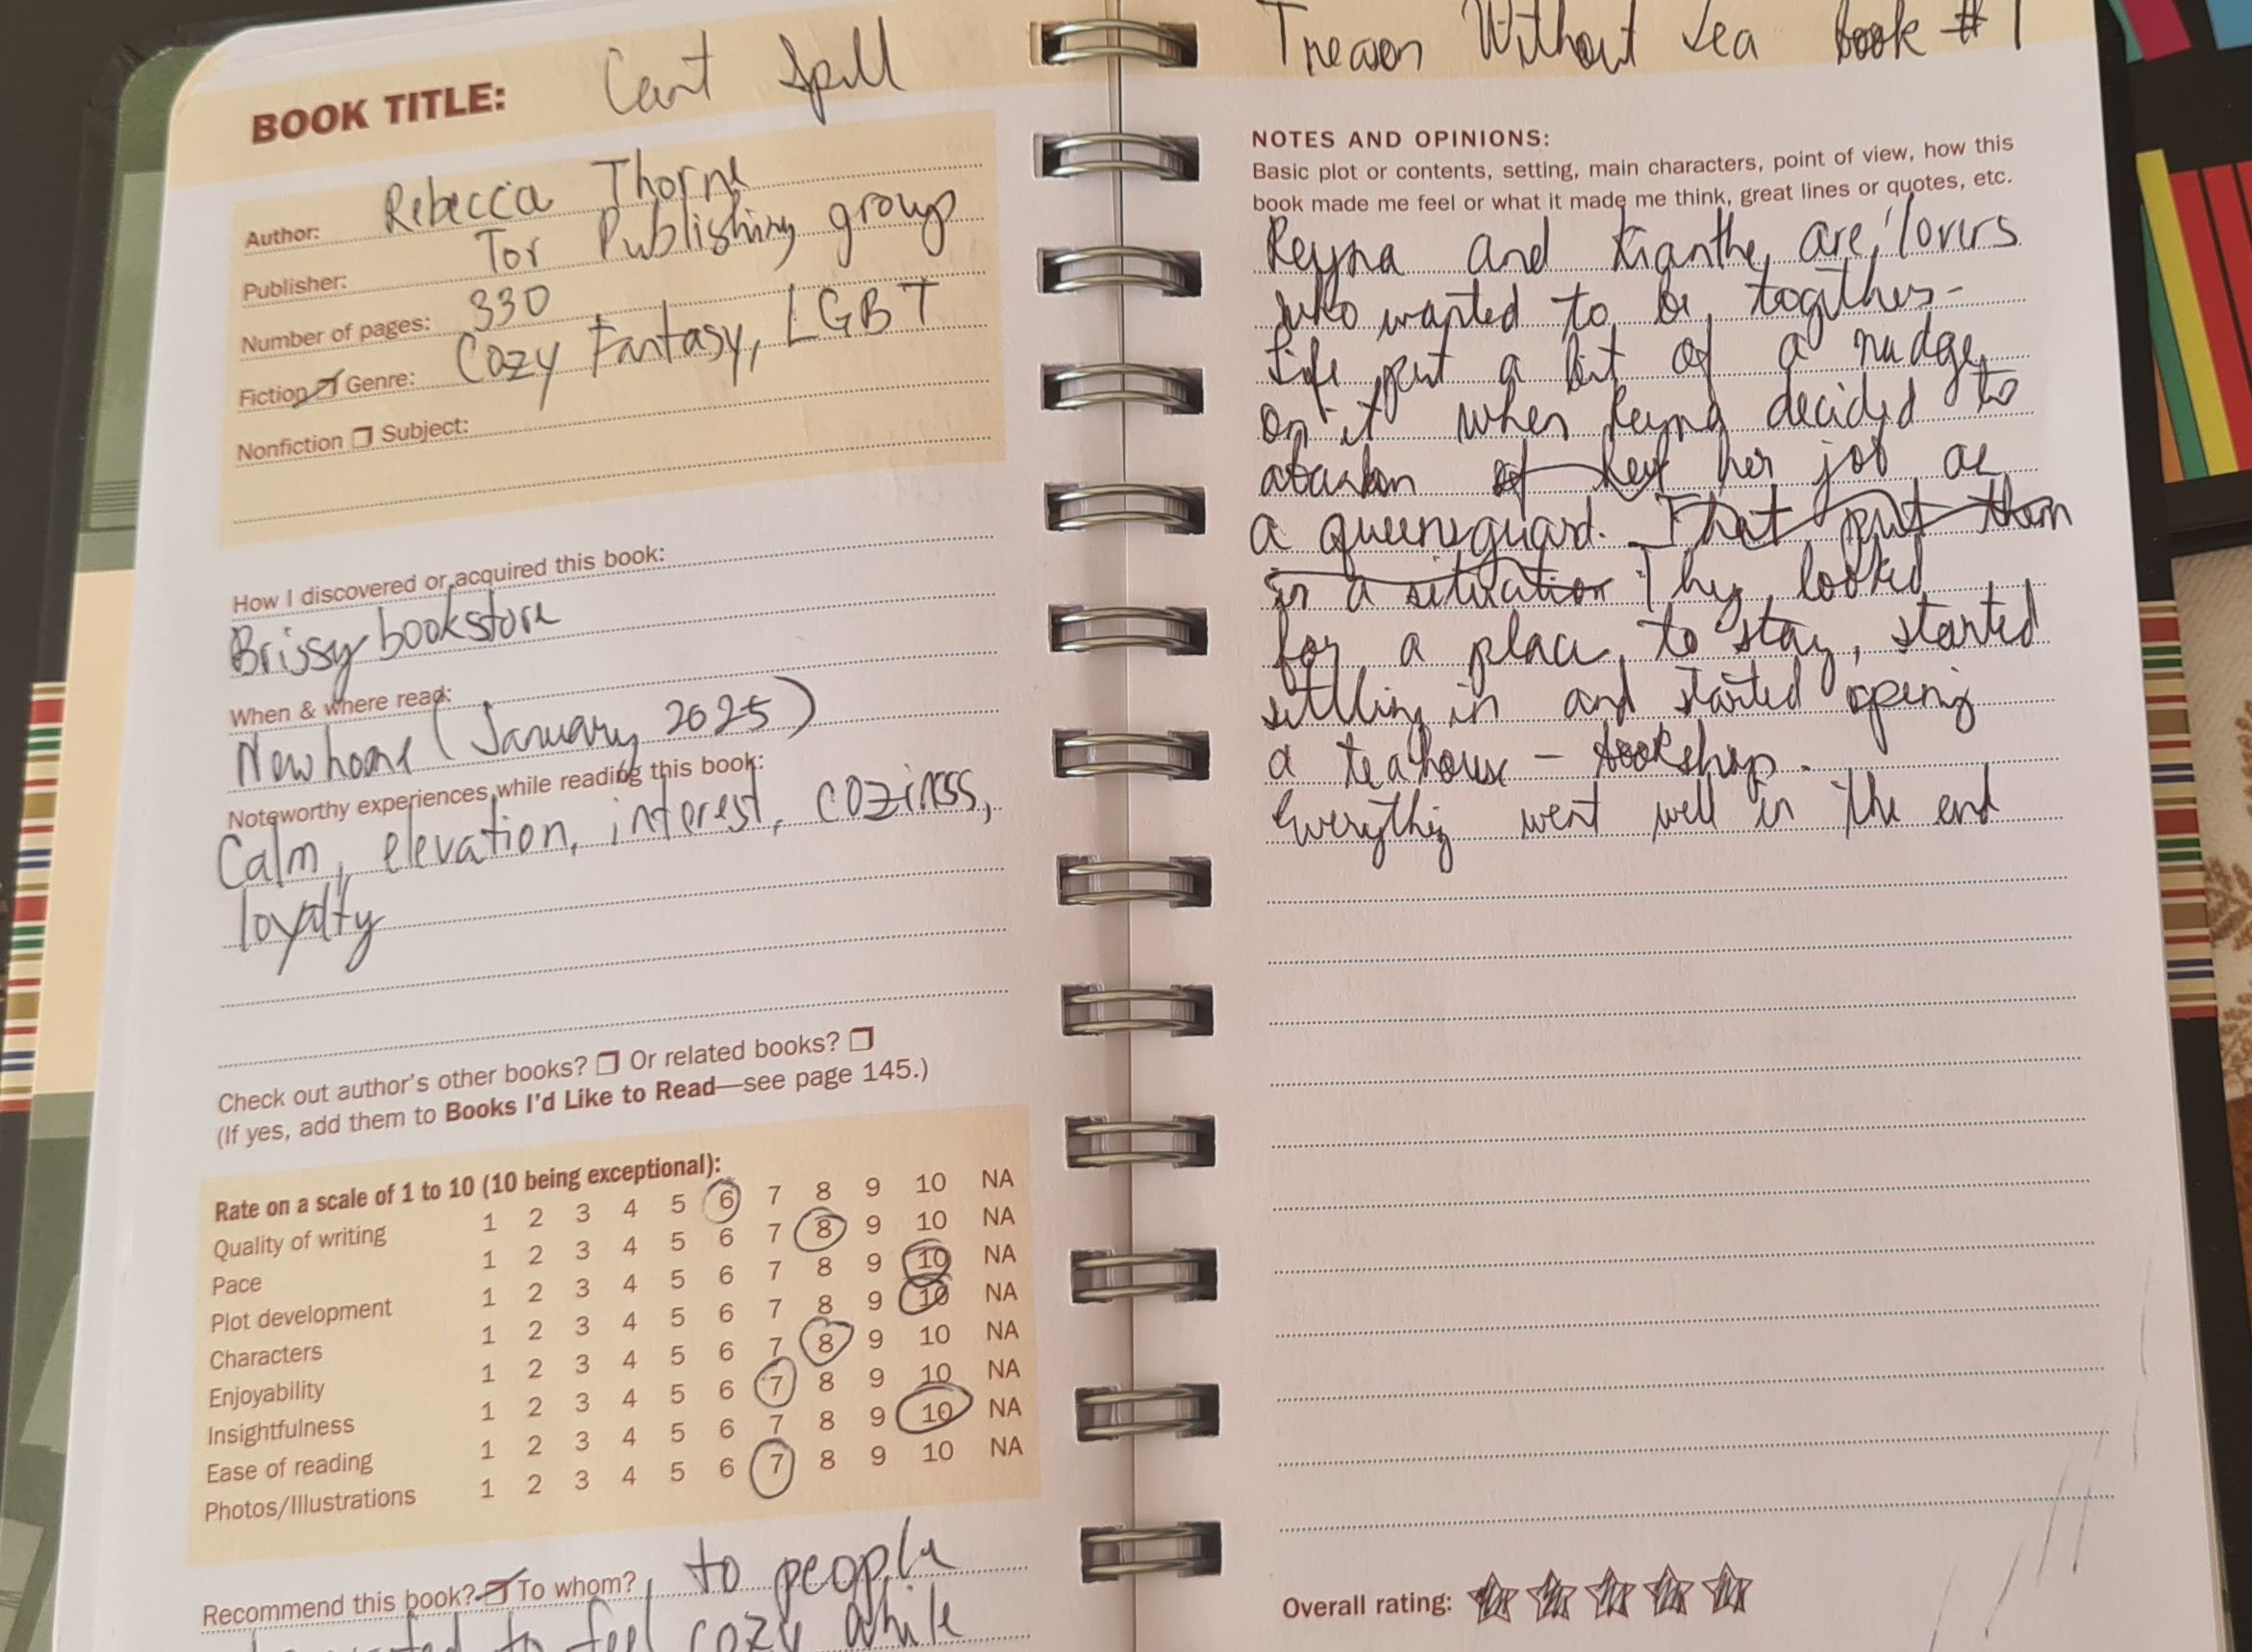 BOOK TITLE: Cant Spill
Author: Rebecca Thorne
Publisher: Tor Publishing group
Number of pages: 330
Fiction Genre: Cozy Fantasy, LGBT
Nonfiction ❒ Subject:
How I discovered or acquired this book:
Brissy bookstore
When & where read:
New home (January 2025)
Noteworthy experiences while reading this book:
Calm, elevation, interest, coziness,
loyalty
Check out author's other books? ❒ Or related books? ❒
(If yes, add them to Books I'd Like to Read—see page 145.)
Rate on a scale of 1 to 10 (10 being exceptional):
Quality of writing 1 2 3 4 5 6 7 8 9 10 NA
Pace 1 2 3 4 5 6 7 8 9 10 NA
Plot development 1 2 3 4 5 6 7 8 9 10 NA
Characters 1 2 3 4 5 6 7 8 9 10 NA
Enjoyability 1 2 3 4 5 6 7 8 9 10 NA
Insightfulness 1 2 3 4 5 6 7 8 9 10 NA
Ease of reading 1 2 3 4 5 6 7 8 9 10 NA
Photos/Illustrations 1 2 3 4 5 6 7 8 9 10 NA
Recommend this book? To whom? to people
to feel cozy while
Treason Without tea Book #1
NOTES AND OPINIONS:
Basic plot or contents, setting, main characters, point of view, how this
book made me feel or what it made me think, great lines or quotes, etc.
Reyna and Kianthe are lovers
who wanted to be together-
Life put a bit of a nudge
on it when Reyna decided to
abandon of her job as
a queensguard. That put them
in a situation They looked
for a place to stay, started
settling in and started opening
a teahouse - bookshop.
Everything went well in the end
Overall rating: